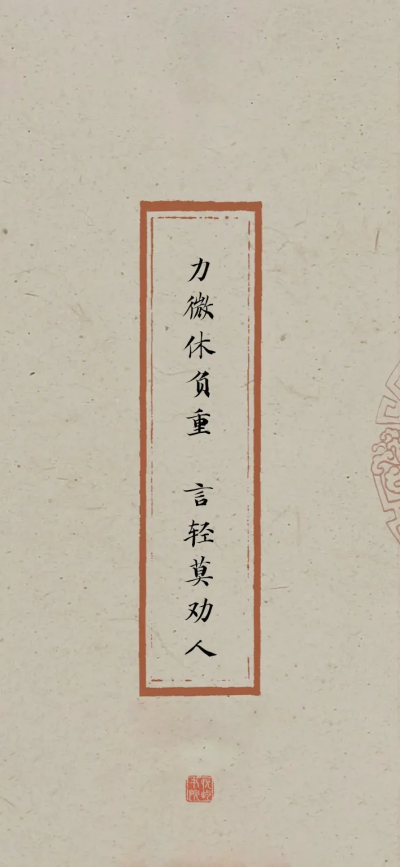 力微休负重 言轻莫劝人